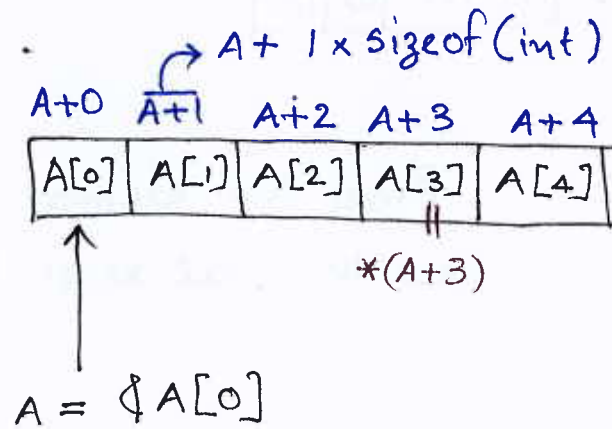 A + 1 x sizeof(int)
A+0 A+1 A+2 A+3 A+4
A[0] A[1] A[2] A[3] A[4]
*(A+3)
A = &A[0]